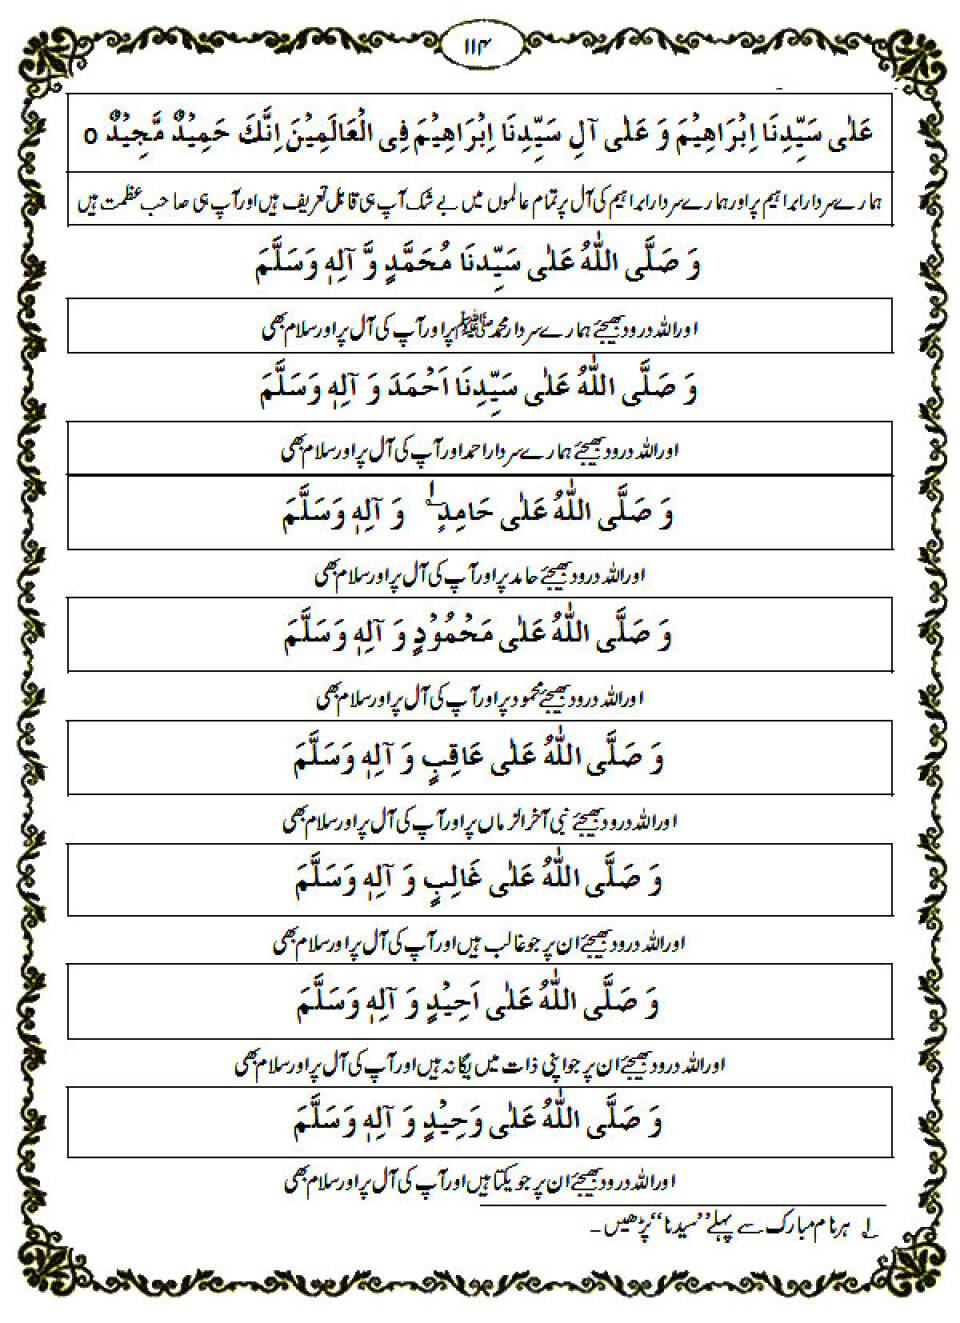 ۱۱۴
عَلٰی سَیِّدِنَا اِبْرَاهِیْمَ وَ عَلٰی آلِ سَیِّدِنَا اِبْرَاهِیْمَ فِی الْعَالَمِیْنَ اِنَّكَ حَمِیْدٌ مَّجِیْدٌ o
ہمارے سردار ابراہیم پر اور ہمارے سردار ابراہیم کی آل پر تمام عالموں میں بے شک آپ ہی قابل تعریف ہیں اور آپ ہی صاحب عظمت ہیں
وَ صَلَّی اللّٰهُ عَلٰی سَیِّدِنَا مُحَمَّدٍ وَّ آلِهٖ وَسَلَّمَ
اور اللہ درود بھیجئے ہمارے سردار محمد ﷺ پر اور آپ کی آل پر اور سلام بھی
وَ صَلَّی اللّٰهُ عَلٰی سَیِّدِنَا اَحْمَدَ وَ آلِهٖ وَسَلَّمَ
اور اللہ درود بھیجئے ہمارے سردار احمد اور آپ کی آل پر اور سلام بھی
وَ صَلَّی اللّٰهُ عَلٰی حَامِدٍ ؎۱ وَ آلِهٖ وَسَلَّمَ
اور اللہ درود بھیجئے حامد پر اور آپ کی آل پر اور سلام بھی
وَ صَلَّی اللّٰهُ عَلٰی مَحْمُوْدٍ وَ آلِهٖ وَسَلَّمَ
اور اللہ درود بھیجئے محمود پر اور آپ کی آل پر اور سلام بھی
وَ صَلَّی اللّٰهُ عَلٰی عَاقِبٍ وَ آلِهٖ وَسَلَّمَ
اور اللہ درود بھیجئے نبی آخر الزماں پر اور آپ کی آل پر اور سلام بھی
وَ صَلَّی اللّٰهُ عَلٰی غَالِبٍ وَ آلِهٖ وَسَلَّمَ
اور اللہ درود بھیجئے ان پر جو غالب ہیں اور آپ کی آل پر اور سلام بھی
وَ صَلَّی اللّٰهُ عَلٰی اَحِیْدٍ وَ آلِهٖ وَسَلَّمَ
اور اللہ درود بھیجئے ان پر جو اپنی ذات میں یگانہ ہیں اور آپ کی آل پر اور سلام بھی
وَ صَلَّی اللّٰهُ عَلٰی وَحِیْدٍ وَ آلِهٖ وَسَلَّمَ
اور اللہ درود بھیجئے ان پر جو یکتا ہیں اور آپ کی آل پر اور سلام بھی
؎۱ ہر نام مبارک سے پہلے ”سیدنا“ پڑھیں۔